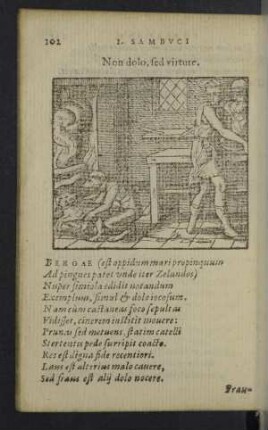 102 I. SAMBVCI
Non dolo, sed virtute.
BERGAE (est oppidum mari propinquum
Ad pingues patet vnde iter Zelandos)
Nuper simiola edidit notandum
Exemplum, simul & dolo iocosum.
Nam cùm castaneas foco sepultas
Vidisset, cinerem institit mouere:
Prunas sed metuens, statim catelli
Stertentis pede surripit coacto.
Res est digna fide recentiori.
Laus est alterius malo cauere,
Sed fraus est alij dolo nocere.
Prau-